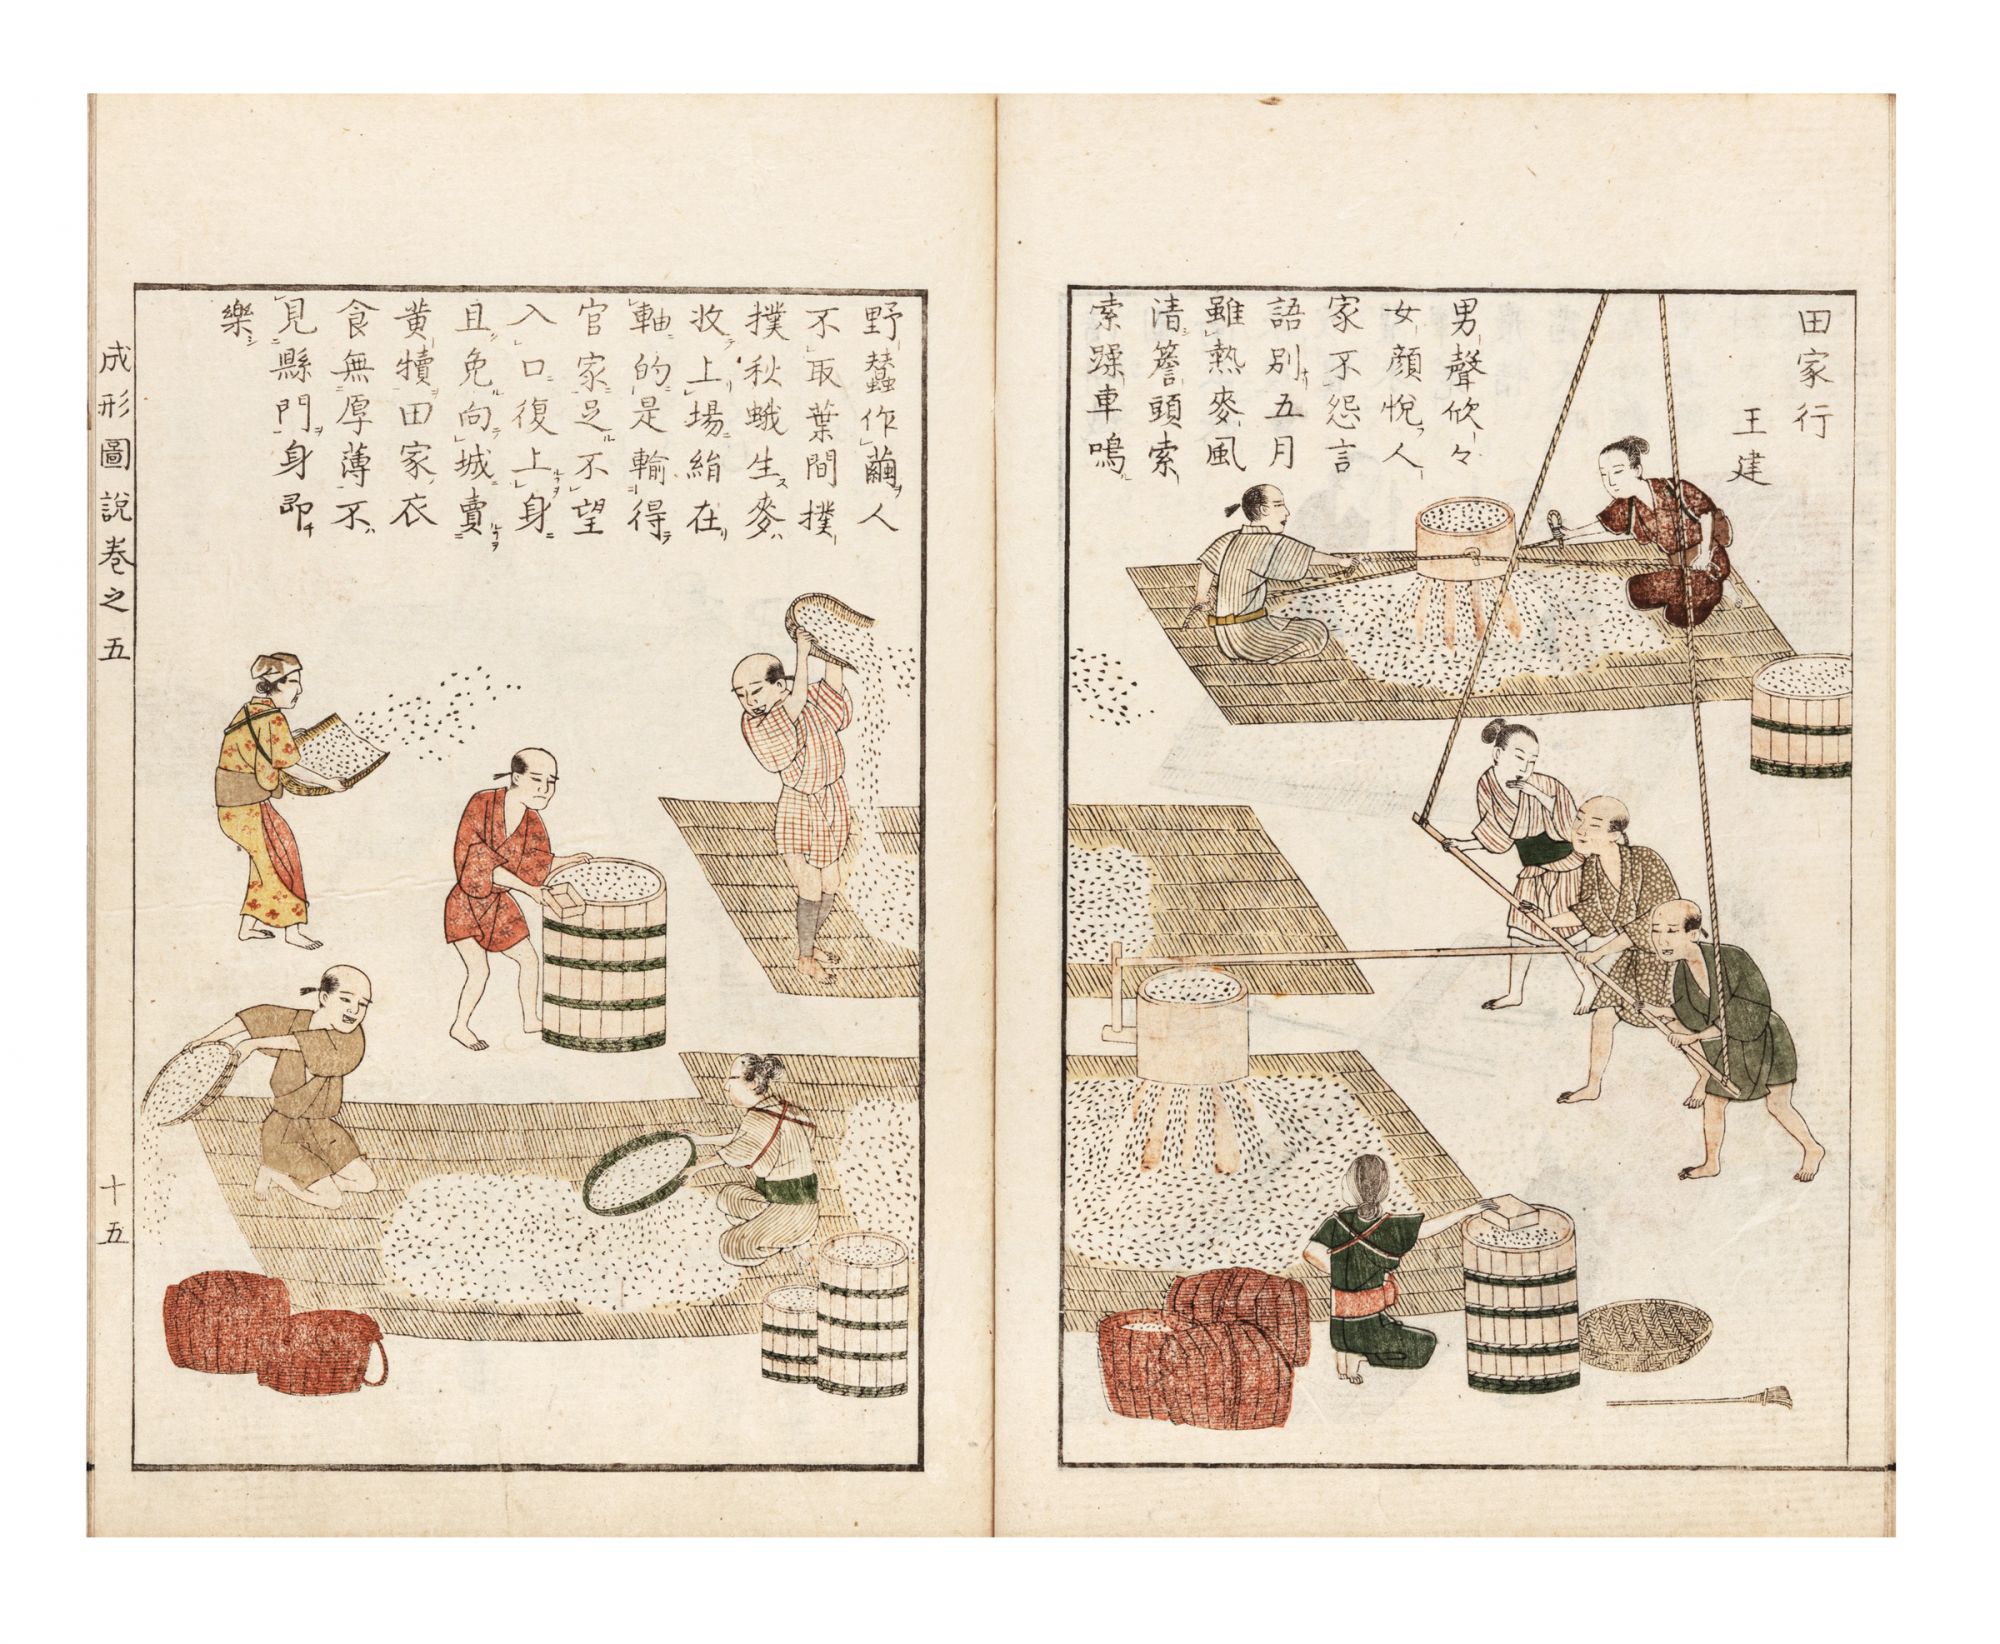 田家行
王建
男聲欣々
女顔悦人
家不怨言
語別五月
雖熱麥風
清簷頭索
索躁車鳴
野蠶作繭人
不取葉間撲
撲秋蛾生麥
收上場絹在
軸的是輸得
官家足不望
入口復上身
且免向城賣
黄犢田家衣
食無厚薄不
見縣門身即
樂
成形圖說卷之五
十五